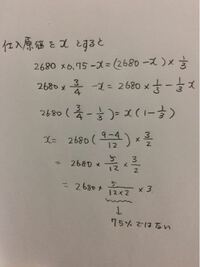 仕入原価を x とすると
2680 × 0.75 - x = (2680 - x) × 1/3
2680 × 3/4 - x = 2680 × 1/3 - 1/3 x
2680 (3/4 - 1/3) = x (1 - 1/3)
x = 2680 (9-4/12) × 3/2
= 2680 × 5/12 × 3/2
= 2680 × 5/12×2 × 3
↓
75%ではない